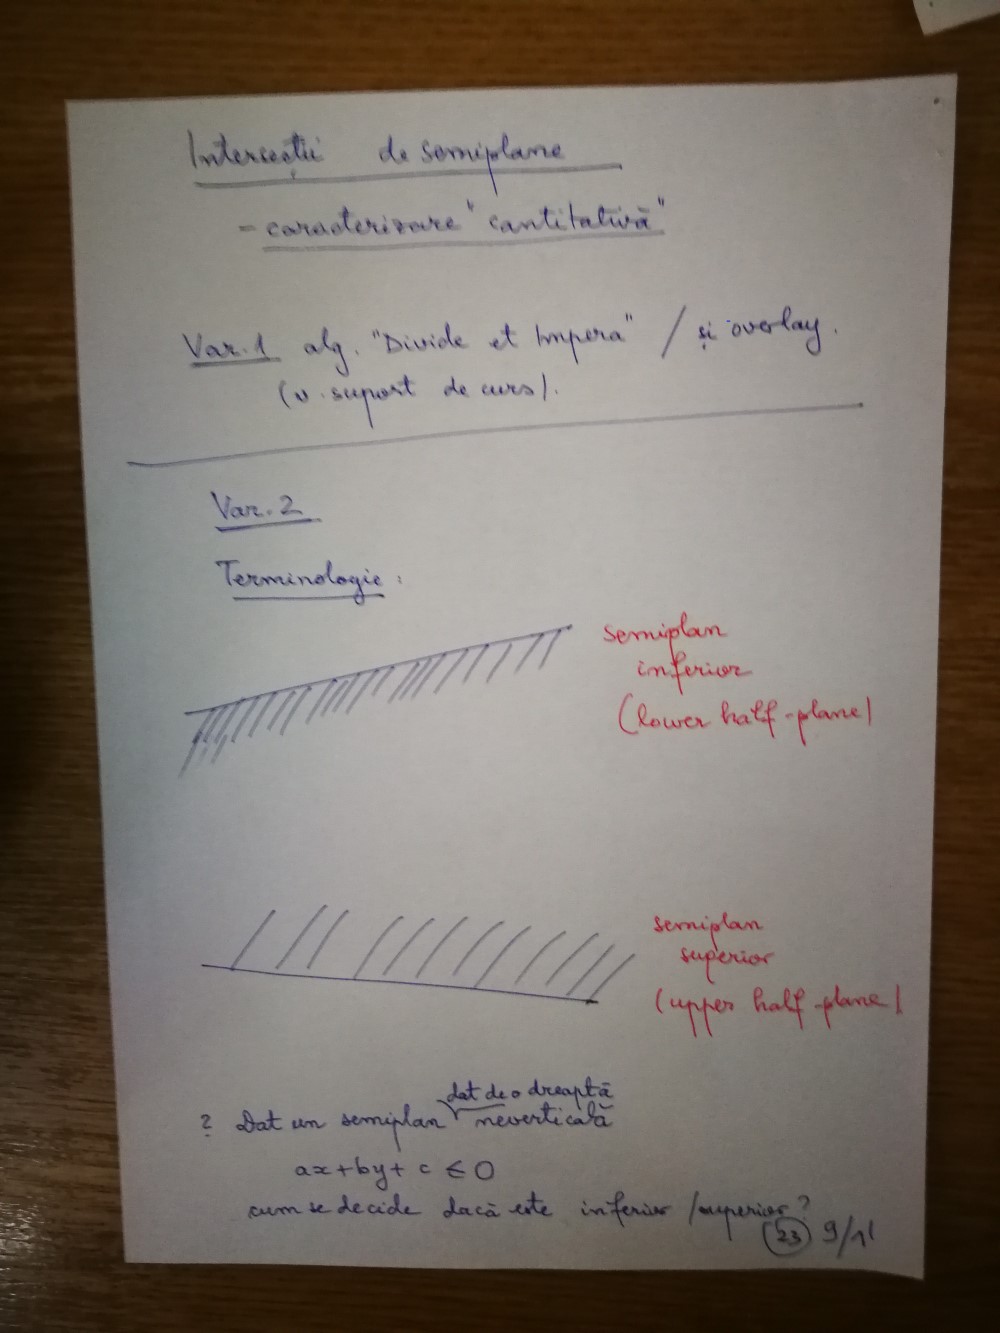 Intersecții de semiplane
- caracterizare "cantitativă"
Var. 1 alg. "Divide et Impera" / și overlay.
(v. suport de curs).
Var. 2
Terminologie:
semiplan
inferior
(lower half-plane)
semiplan
superior
(upper half-plane)
dat de o dreaptă
? Dat un semiplan neverticală
ax+by+ c ≤ 0
cum se decide dacă este inferior /superior?
23 9/11